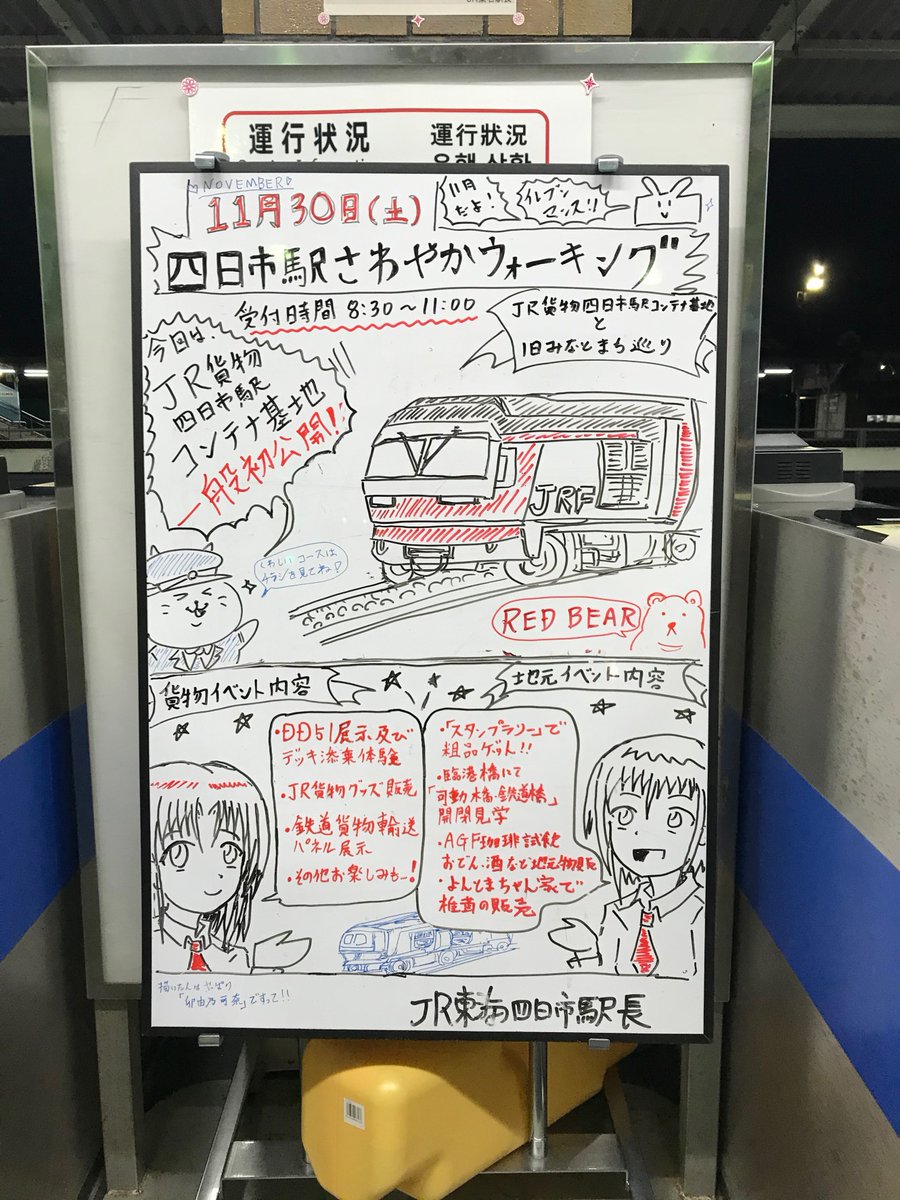 運行状況
運行狀況
NOVEMBER
11月30日(土)
11月
だよ!
イレブン
マンス!!
四日市駅さわやかウォーキング
受付時間 8:30〜11:00
JR貨物四日市駅コンテナ基地
と
旧みなとまち巡り
今回は、
JR貨物
四日市駅
コンテナ基地
一般初公開!!
JRF
くわしいコースは
チラシを見てね!
RED BEAR
貨物イベント内容
地元イベント内容
・DD51展示及び
デッキ添乗体験
・JR貨物グッズ販売
・鉄道貨物輸送
パネル展示
・その他お楽しみも…!
・「スタンプラリー」で
粗品ゲット!!
・臨港橋にて
「可動橋・鉄道橋」
開閉見学
・AGF珈琲試飲
おでん、酒など地元物販
・よんとまちゃん家で
椎茸の販売
描いたんはやっぱり
ですって!!
JR東海四日市駅長